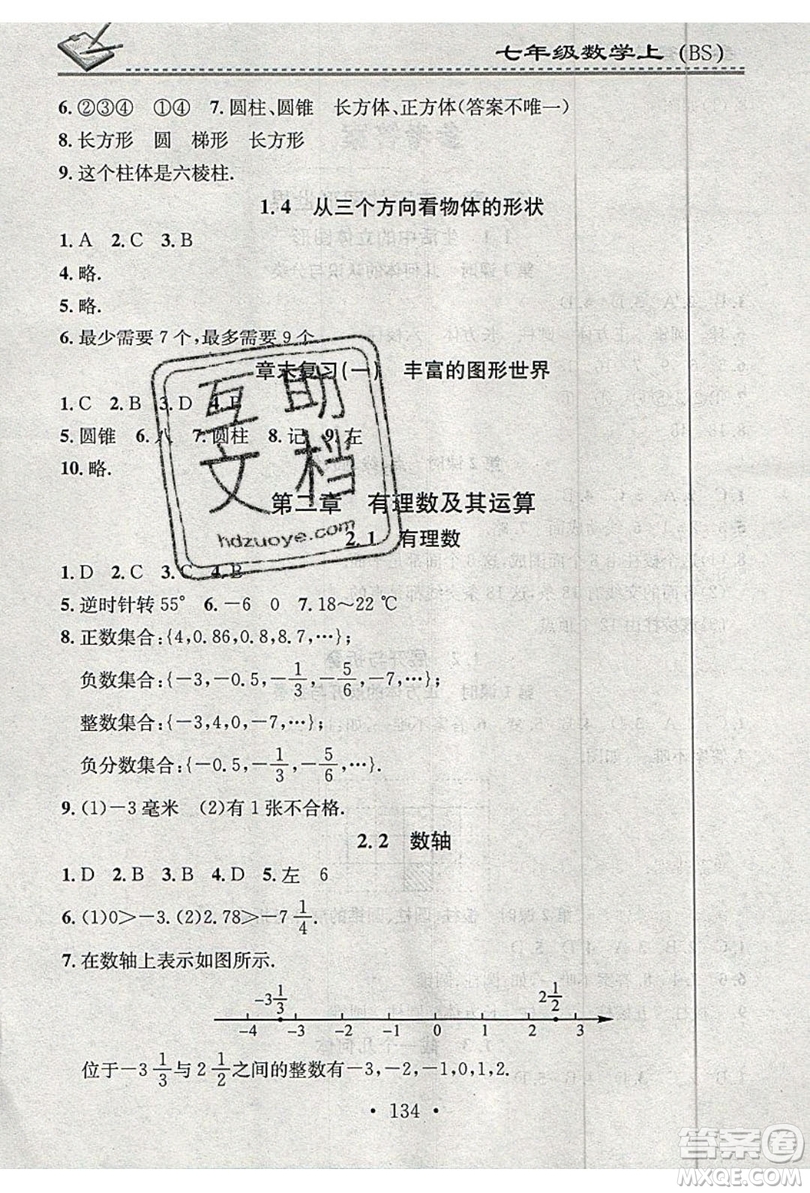 七年级数学上(BS)
6.②③④ ①④ 7.圆柱、圆锥 长方体、正方体(答案不唯一)
8.长方形 圆 梯形 长方形
9.这个柱体是六棱柱.
1.4 从三个方向看物体的形状
1.A 2.C 3.B
4.略.
5.略.
6.最少需要7个,最多需要9个
章末复习(一) 丰富的图形世界
1.C 2.B 3.D 4.
5.圆锥 6.八 7.圆柱 8.记 9.左
10.略.
第二章 有理数及其运算
2.1 有理数
1.D 2.C 3.C 4.B
5.逆时针转55° 6.-6 0 7.18~22 ℃
8.正数集合:{4,0.86,0.8,8.7,…};
负数集合:{-3,-0.5,-1/3,-5/6,-7,…};
整数集合:{-3,4,0,-7,…};
负分数集合:{-0.5,-1/3,-5/6,…}.
9.(1)-3毫米 (2)有1张不合格.
2.2 数轴
1.D 2.B 3.C 4.D 5.左 6
6.(1)0>-3.(2)2.78>-7 1/4.
7.在数轴上表示如图所示.
-3 1/3 2 1/2
-4 -3 -2 -1 0 1 2 3
位于-3 1/3与2 1/2之间的整数有-3,-2,-1,0,1,2.
· 134 ·
互助
文档
hdzuoye.com
答案圈
MXQE.COM